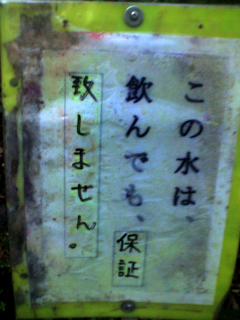 この水は、
飲んでも、保証
致しません。